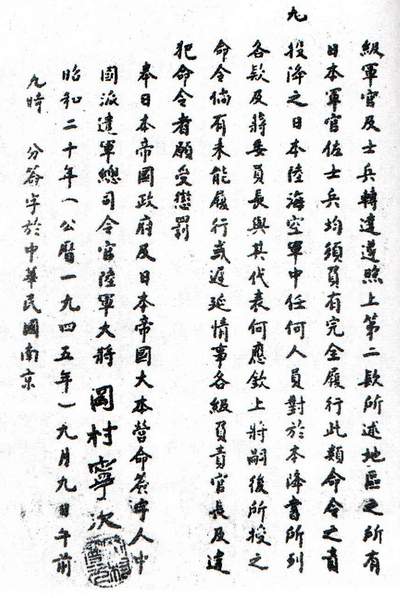 級軍官及士兵轉達遵照上第二款所述地區之所有
日本軍官佐士兵均須負有完全履行此類命令之責
九
投降之日本陸海空軍中任何人員對於本降書所列
各款及蔣委員長與其代表何應欽上將嗣後所授之
命令倘有未能履行或遲延情事各級負責官長及違
犯命令者願受懲罰
奉日本帝國政府及日本帝國大本營命簽字人中
國派遣軍總司令官陸軍大將 岡村寧次
昭和二十年(公曆一九四五年)九月九日午前
九時 分簽字於中華民國南京